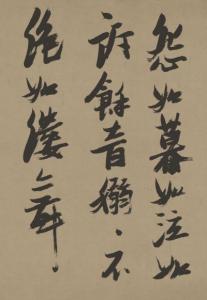 怨如慕如泣如
訴餘音嫋〻不
絕如縷舞